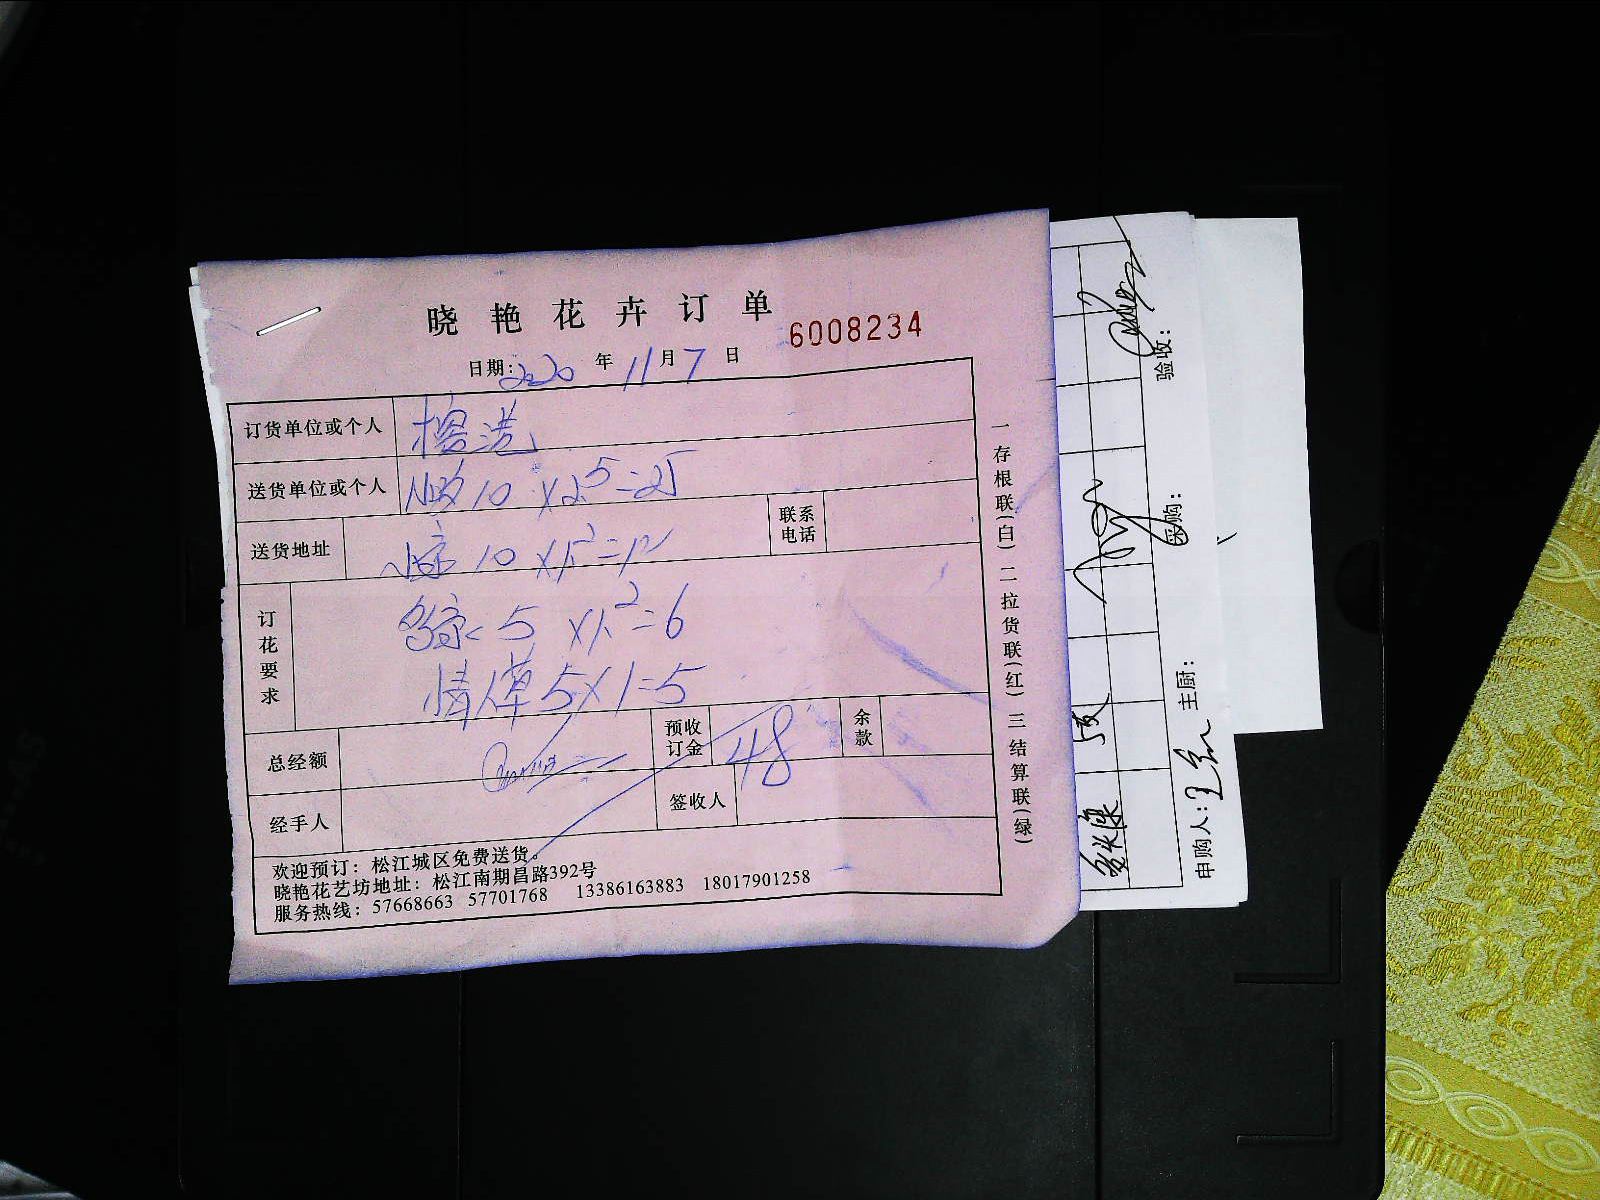 晓艳花卉订单
6008234
日期: 2020 年 11 月 7 日
订货单位或个人 榕港
送货单位或个人 小玫 10 × 2.5 = 25
送货地址 10 × 1.2 = 12 联系电话
订花要求 5 × 1.2 = 6
情人草 5 × 1 = 5
总经额 预收订金 48 余款
经手人 签收人
欢迎预订：松江城区免费送货。
晓艳花艺坊地址：松江南期昌路392号
服务热线：57668663 57701768 13386163883 18017901258
一存根联(白) 二拉货联(红) 三结算联(绿)
申购人: 主厨: 采购: 验收: